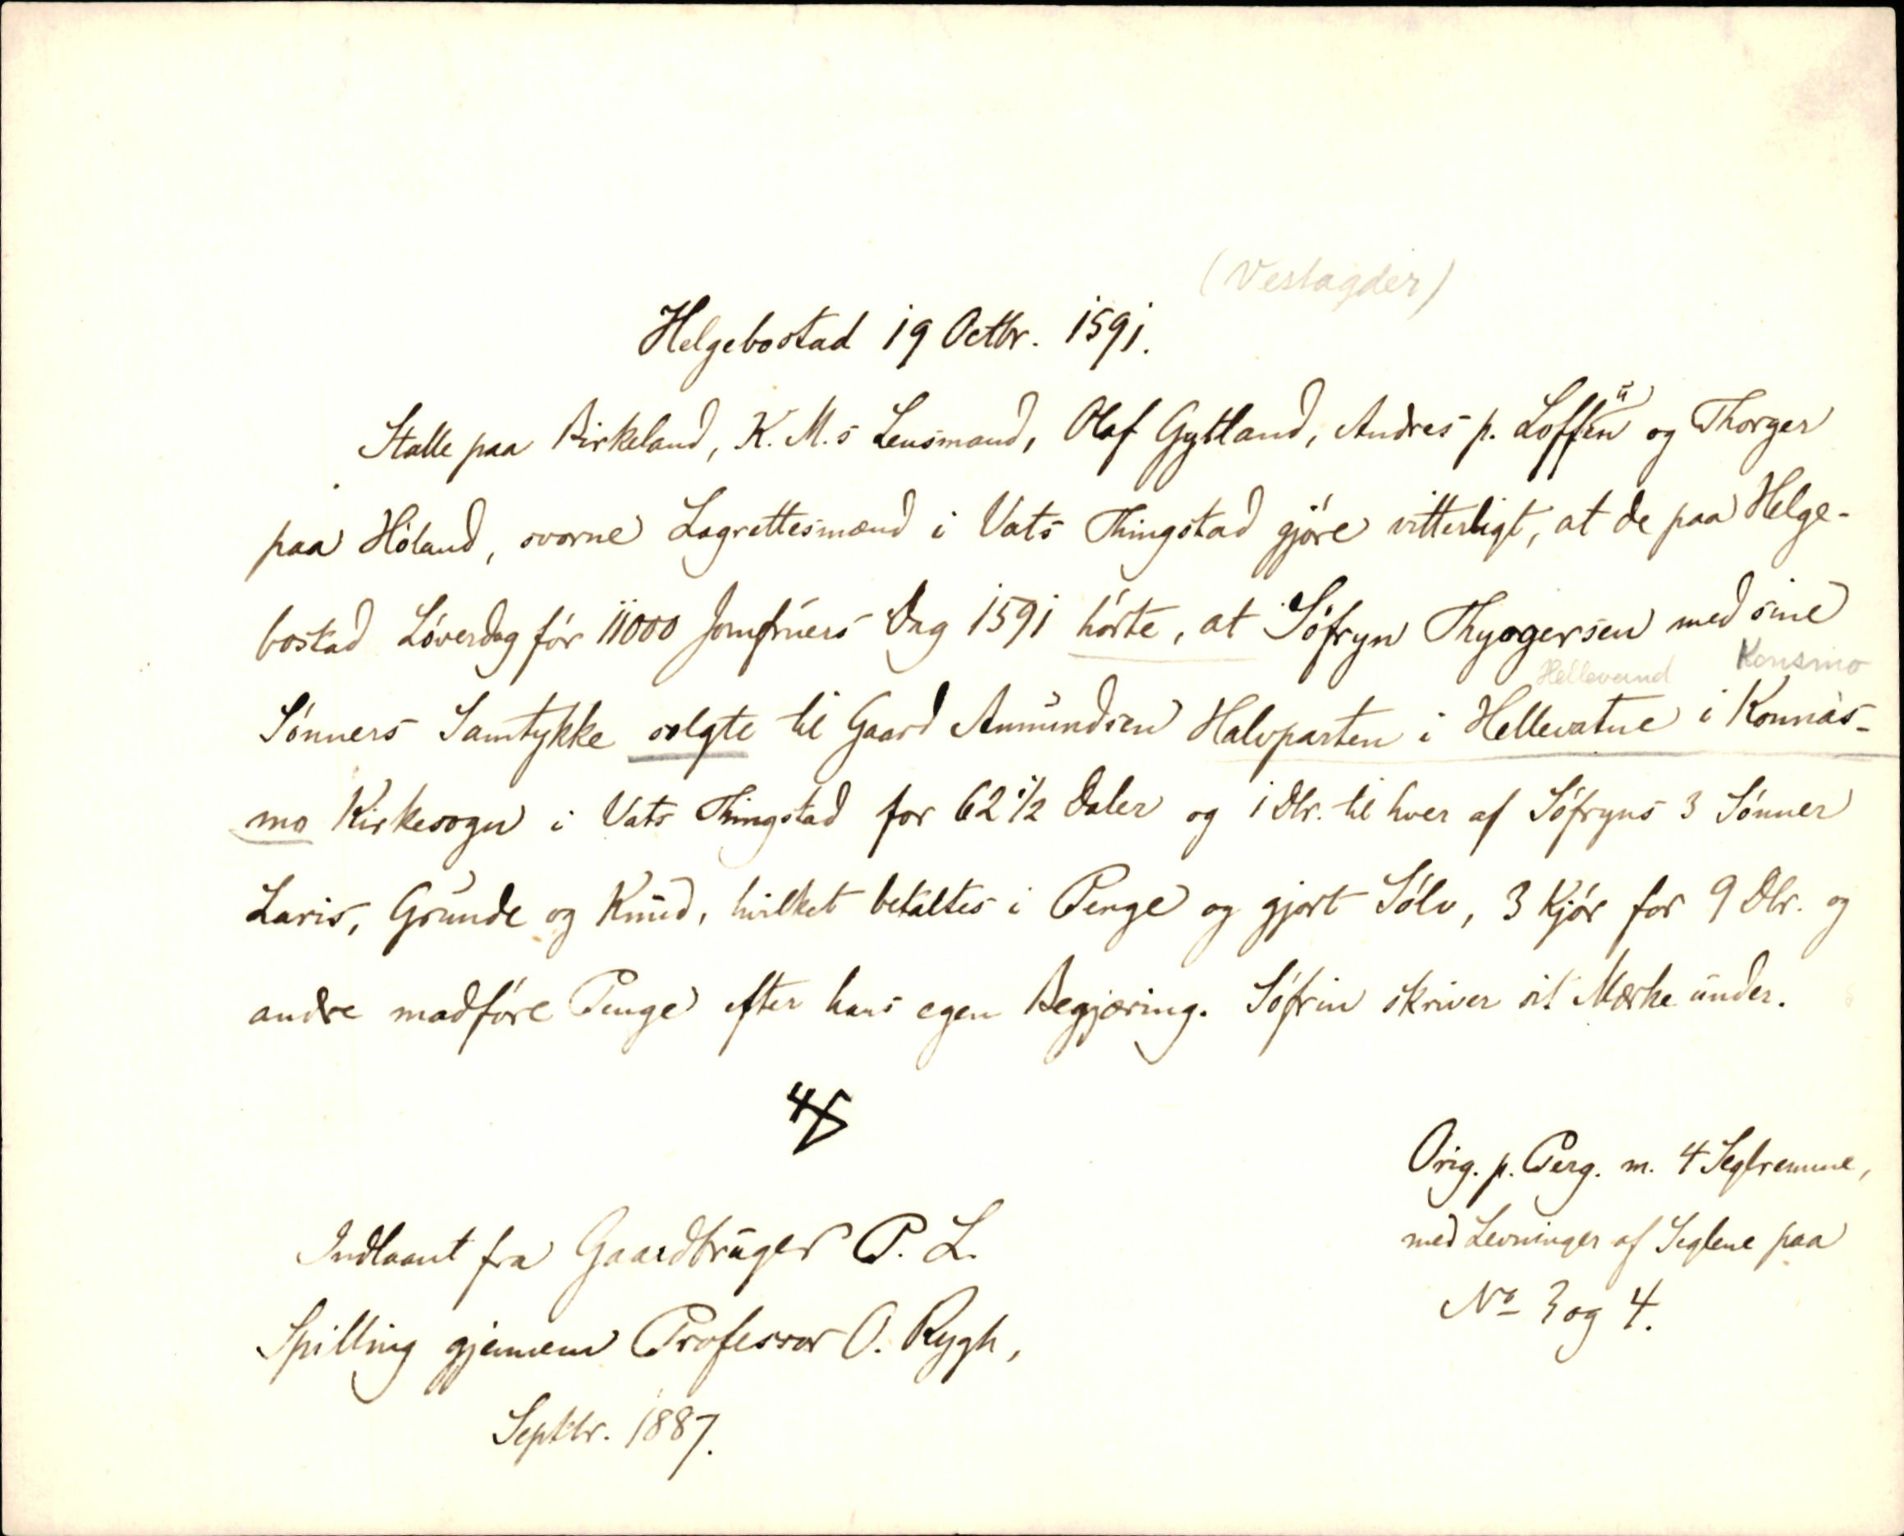 (Vestagder)
Helgebostad 19 Octbr. 1591.
Stalle paa Birkeland, K. M.s Lensmand, Olaf Gytland, Andres p. Loffenn og Thorger
paa Høland, svorne Lagrettesmænd i Vats Thingstad gjøre vitterligt, at de paa Helge-
bostad Løverdag før 11000 Jomfruers Dag 1591 hørte, at Søfryn Thyogersen med sine
Hellevand Konsmo
Sønners Samtykke solgte til Gaard Amundsen Halvparten i Hellevatne i Konnäs-
mo Kirkesogn i Vats Thingstad for 62 1/2 Daler og 1 Dlr. til hver af Søfryns 3 Sønner
Laris, Grunde og Knud, hvilket betaltes i Penge og gjort Sølv, 3 Kjør for 9 Dlr. og
andre madføre Penge efter hans egen Begjæring. Søfrin skriver sit Mærke under.
Orig. p. Perg. m. 4 Seglremme,
med Levninger af Seglene paa
No 3 og 4.
Indlaant fra Gaardbruger P. L.
Spilling gjennem Professor O. Rygh,
Septbr. 1887.